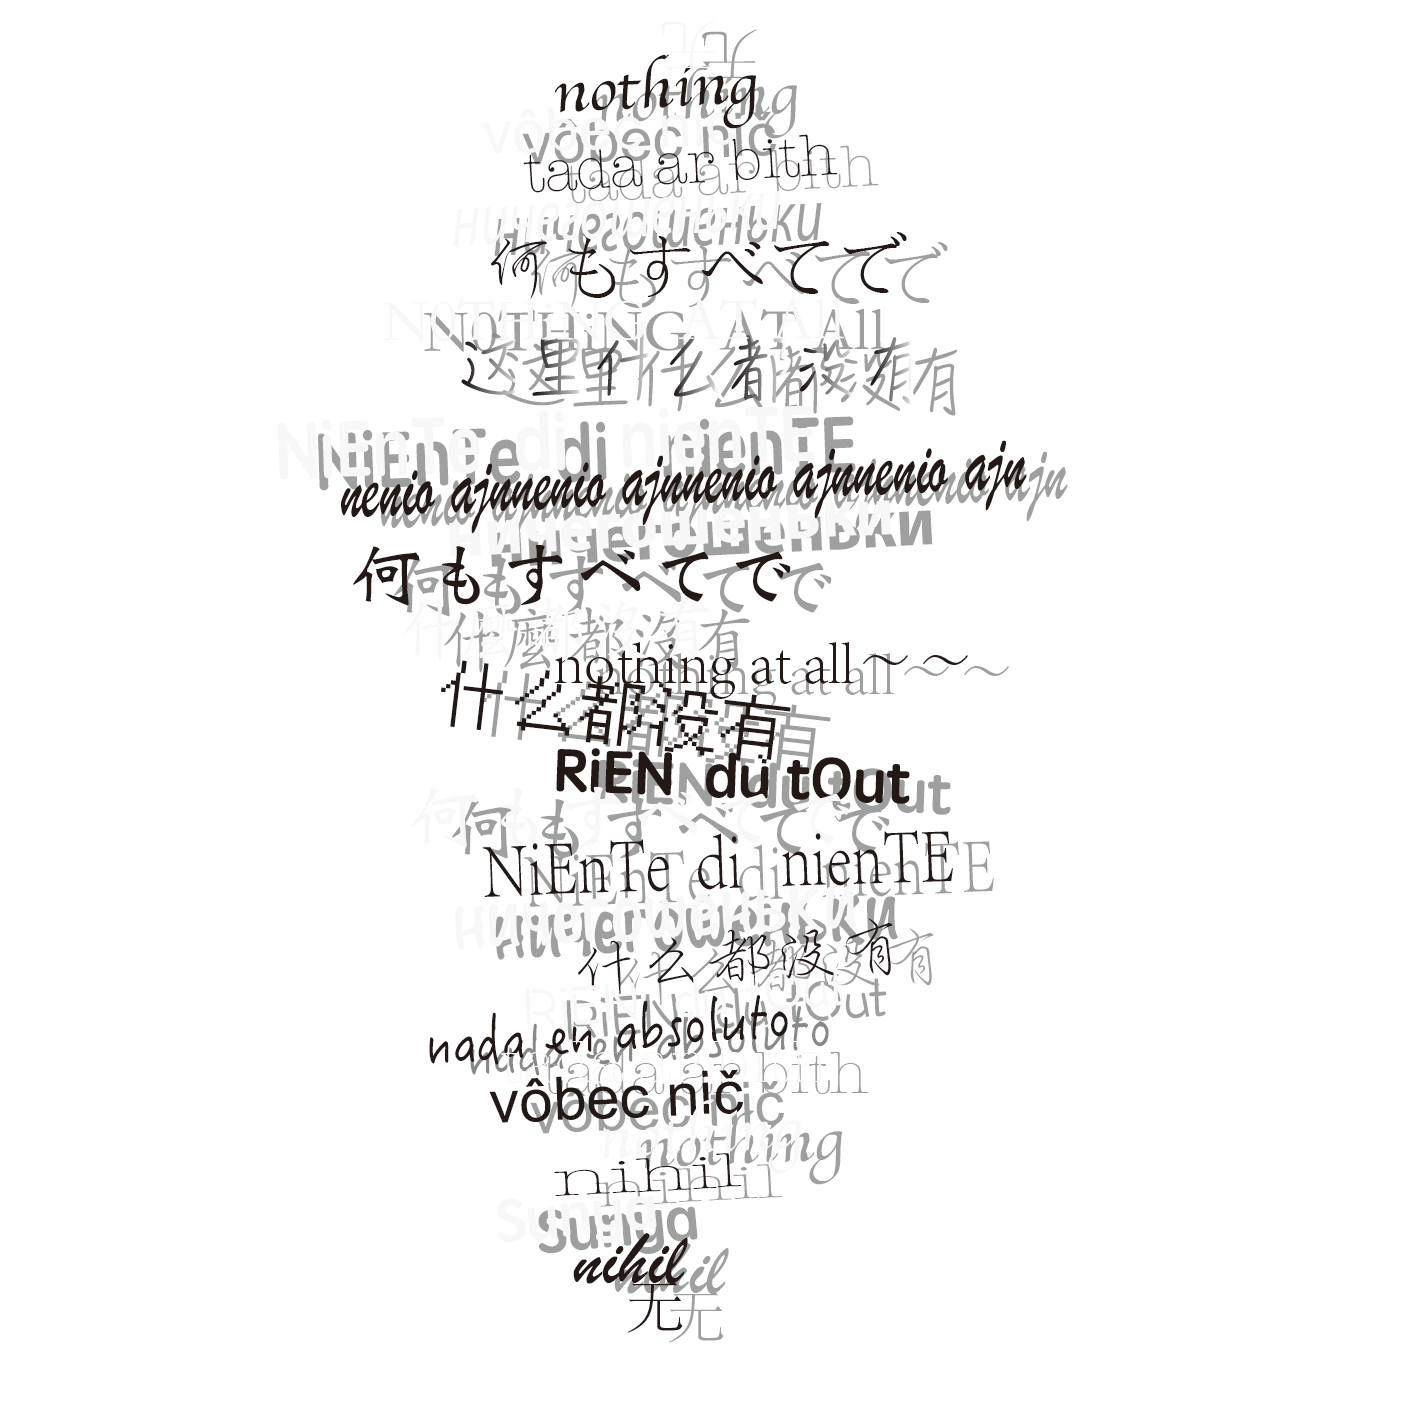 nothing
vôbec nič
tada ar bith
ничегошеньки
何もすべてで
N0THiNG AT All
这里什么都没有
NiEnTe di nienTE
nenio ajnnenio ajnnenio ajnnenio ajn
ничегошеньки
何もすべてで
什麼都沒有
nothing at all～～
什么都没有
RiEN du tOut
何もすべてで
NiEnTe di nienTE
ничегошеньки
什么都没有
RiEN du tOut
nada en absoluto
tada ar bith
vôbec nič
nothing
nihil
Sunya
nihil
无